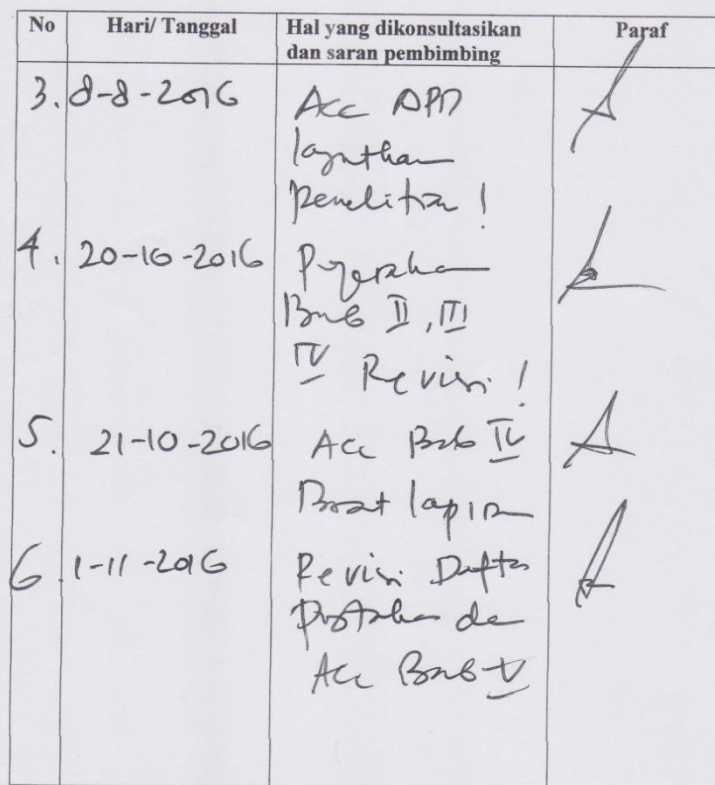 No Hari/ Tanggal Hal yang dikonsultasikan dan saran pembimbing Paraf
3. 8-8-2016 Acc APD
lanjutkan
penelitian !
4. 20-10-2016
Bab II, III
IV Revisi !
5. 21-10-2016 Acc Bab IV
Buat
6. 1-11-2016 Revisi Daftar
Pustaka dan
Acc Bab V